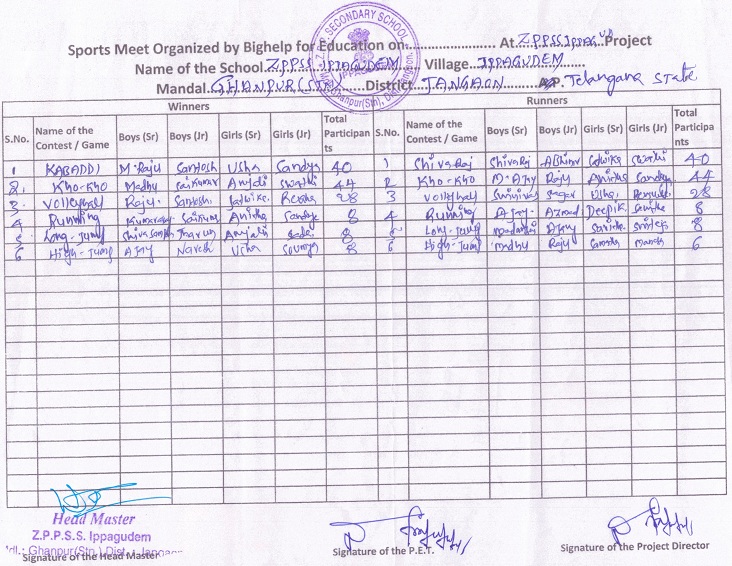 Sports Meet Organized by Bighelp for Education on........................ At Z.P.P.S.S. Ippagudem Project
Name of the School Z.P.P.S.S. IPPAGUDEM Village IPPAGUDEM
Mandal GHANPUR (STN) District JANGAON Telangana State
Z.P.P. SECONDARY SCHOOL
IPPAGUDEM
Ghanpur(Stn), Dist. Jangaon
Winners Runners
S.No. Name of the Contest / Game Boys (Sr) Boys (Jr) Girls (Sr) Girls (Jr) Total Participants S.No. Name of the Contest / Game Boys (Sr) Boys (Jr) Girls (Sr) Girls (Jr) Total Participants
1 KABADDI M. Raju Santosh Usha Sandya 40 1 Shivaraj Shivaraj Abhinav swathi 40
2. Kho-Kho Madhu Saikumar Anjali swathi 44 2 Kho-Kho M. Ajay Raju Anitha Sandya 44
3. Volleyball Raju. Santosh. 28 3 Volleyball Srinivas Sagar Usha. 28
4 Running Saikumar Anitha Sandya 8 4 Running Ajay. Azmad Deepik 8
5 Long-Jump Tharun Anjali 8 Long-Jump Ajay 8
6 High-Jump Ajay Naresh Usha Soumya 8 6 High-Jump Madhu Raju 6
Head Master
Z.P.P.S.S. Ippagudem
Mdl.: Ghanpur(Stn.) Dist. : Jangaon
Signature of the Head Master
Signature of the P.E.T.
Signature of the Project Director